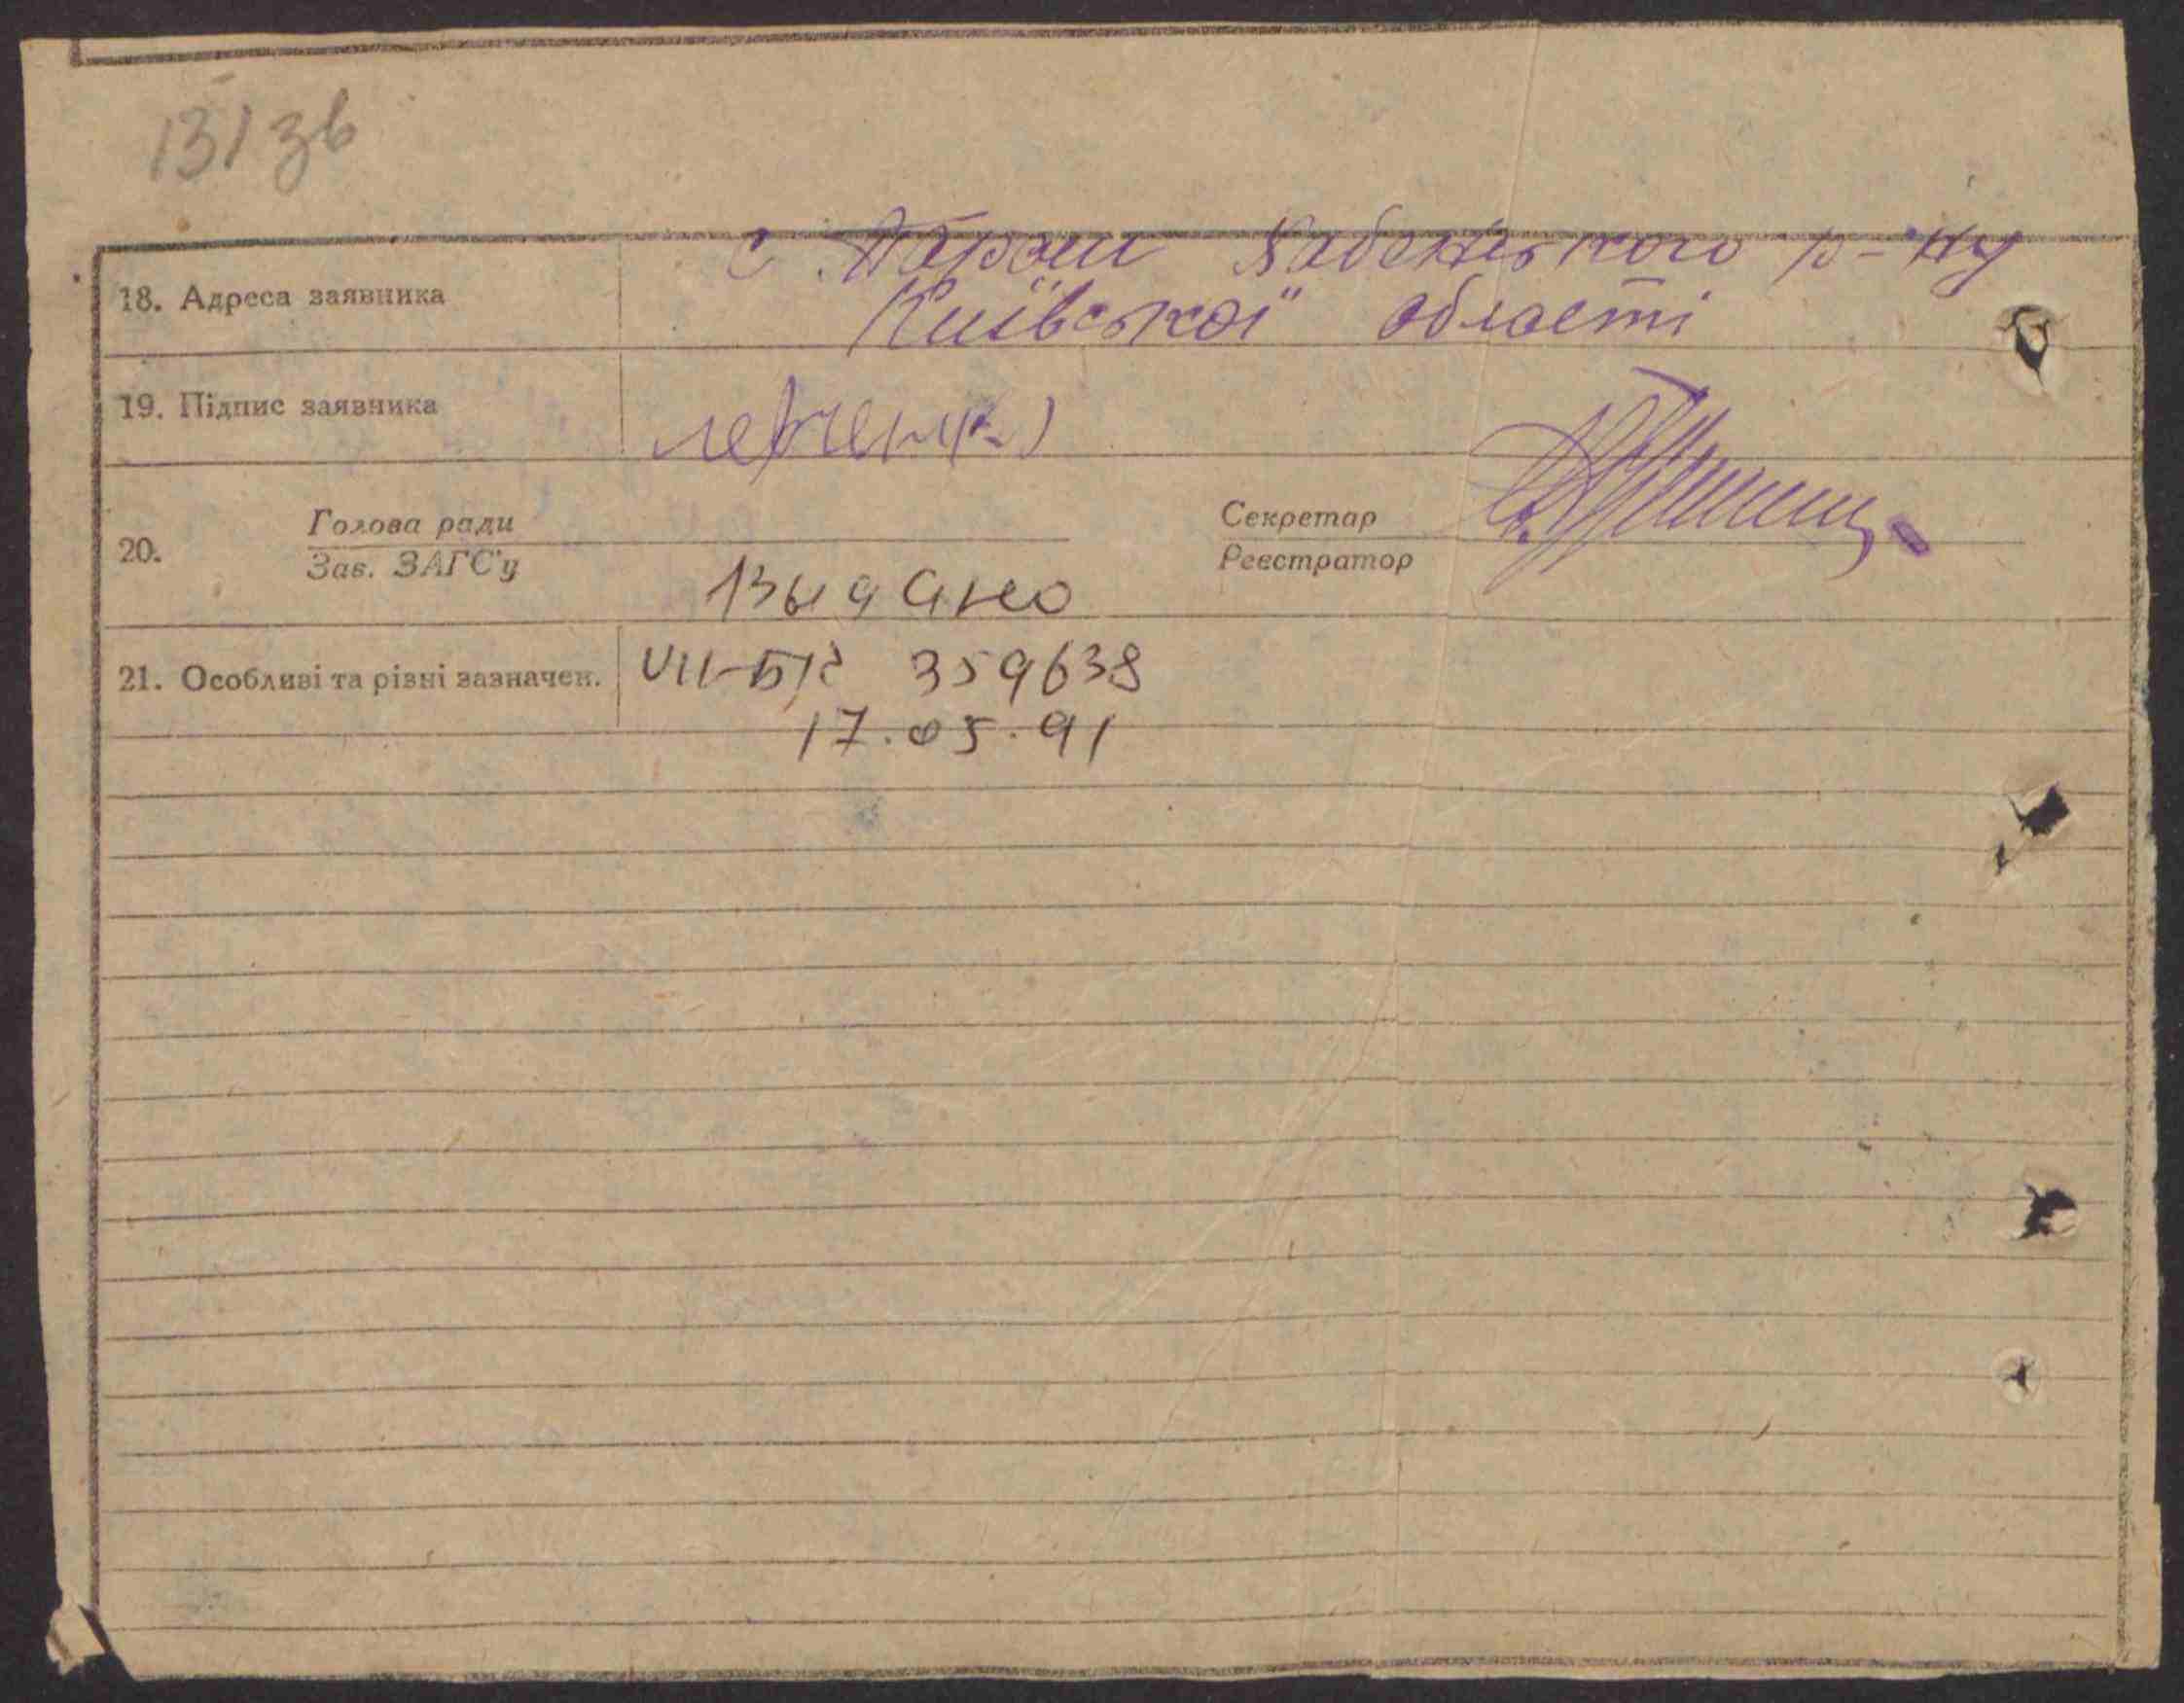 131 зв
18. Адреса заявника
с. Кабанського р-ну
Київської області
19. Підпис заявника
20. Голова ради
Зав. ЗАГС'у
Секретар
Реєстратор
Выдано
21. Особливі та різні зазначен.
VII-БК 359638
17.05.91